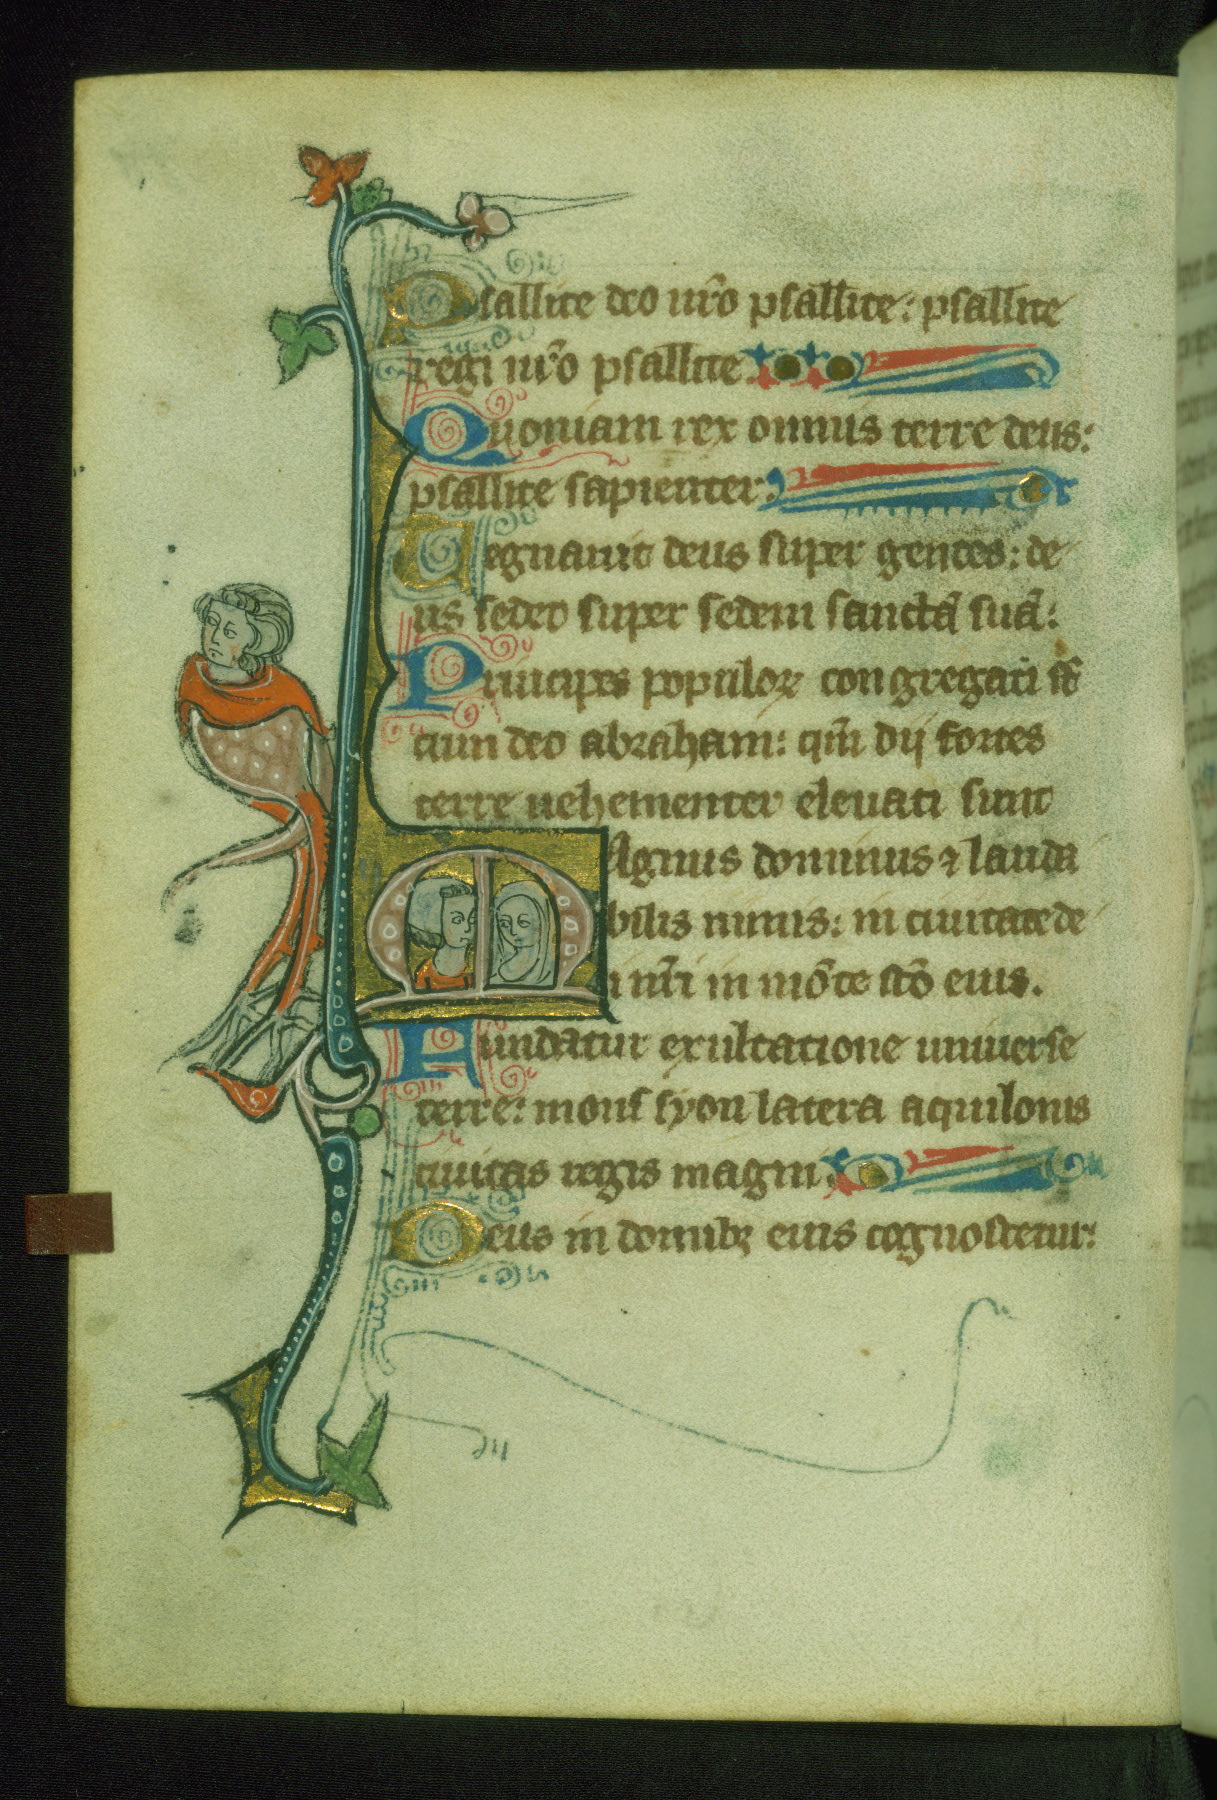 Psallite deo nr̄o psallite: psallite
regi nr̄o psallite.
Quoniam rex omnis terre deus:
psallite sapienter.
Regnavit deus super gentes: de
us sedet super sedem sanctā suā:
Principes populoꝝ congregati st̄
cum deo abraham: qm̄ dij fortes
terre uehementer eleuati sunt
MAgnus dominus ⁊ lauda
bilis nimis: in ciuitate de
i nr̄i in mōte sc̄o eius.
Fundatur exultatione uniuerse
terre: mons syon latera aquilonis
ciuitas regis magni.
Deus in domibꝫ eius cognoscetur: